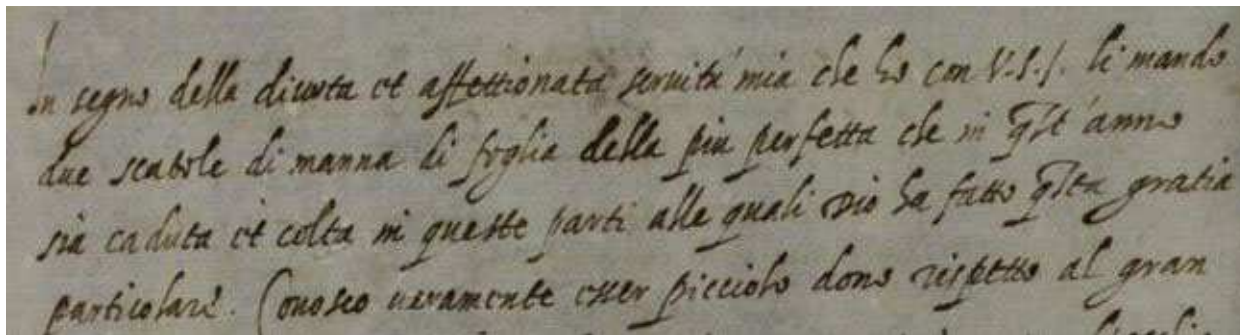 In segno della divota et affettionata servitù mia che ho con V.S.J. li mando
due scatole di manna di foglia della più perfetta che in q̃st'anno
sia caduta et colta in queste parti alle quali Dio ha fatto q̃sta gratia
particolare. Conosco veramente esser picciolo dono rispetto al gran